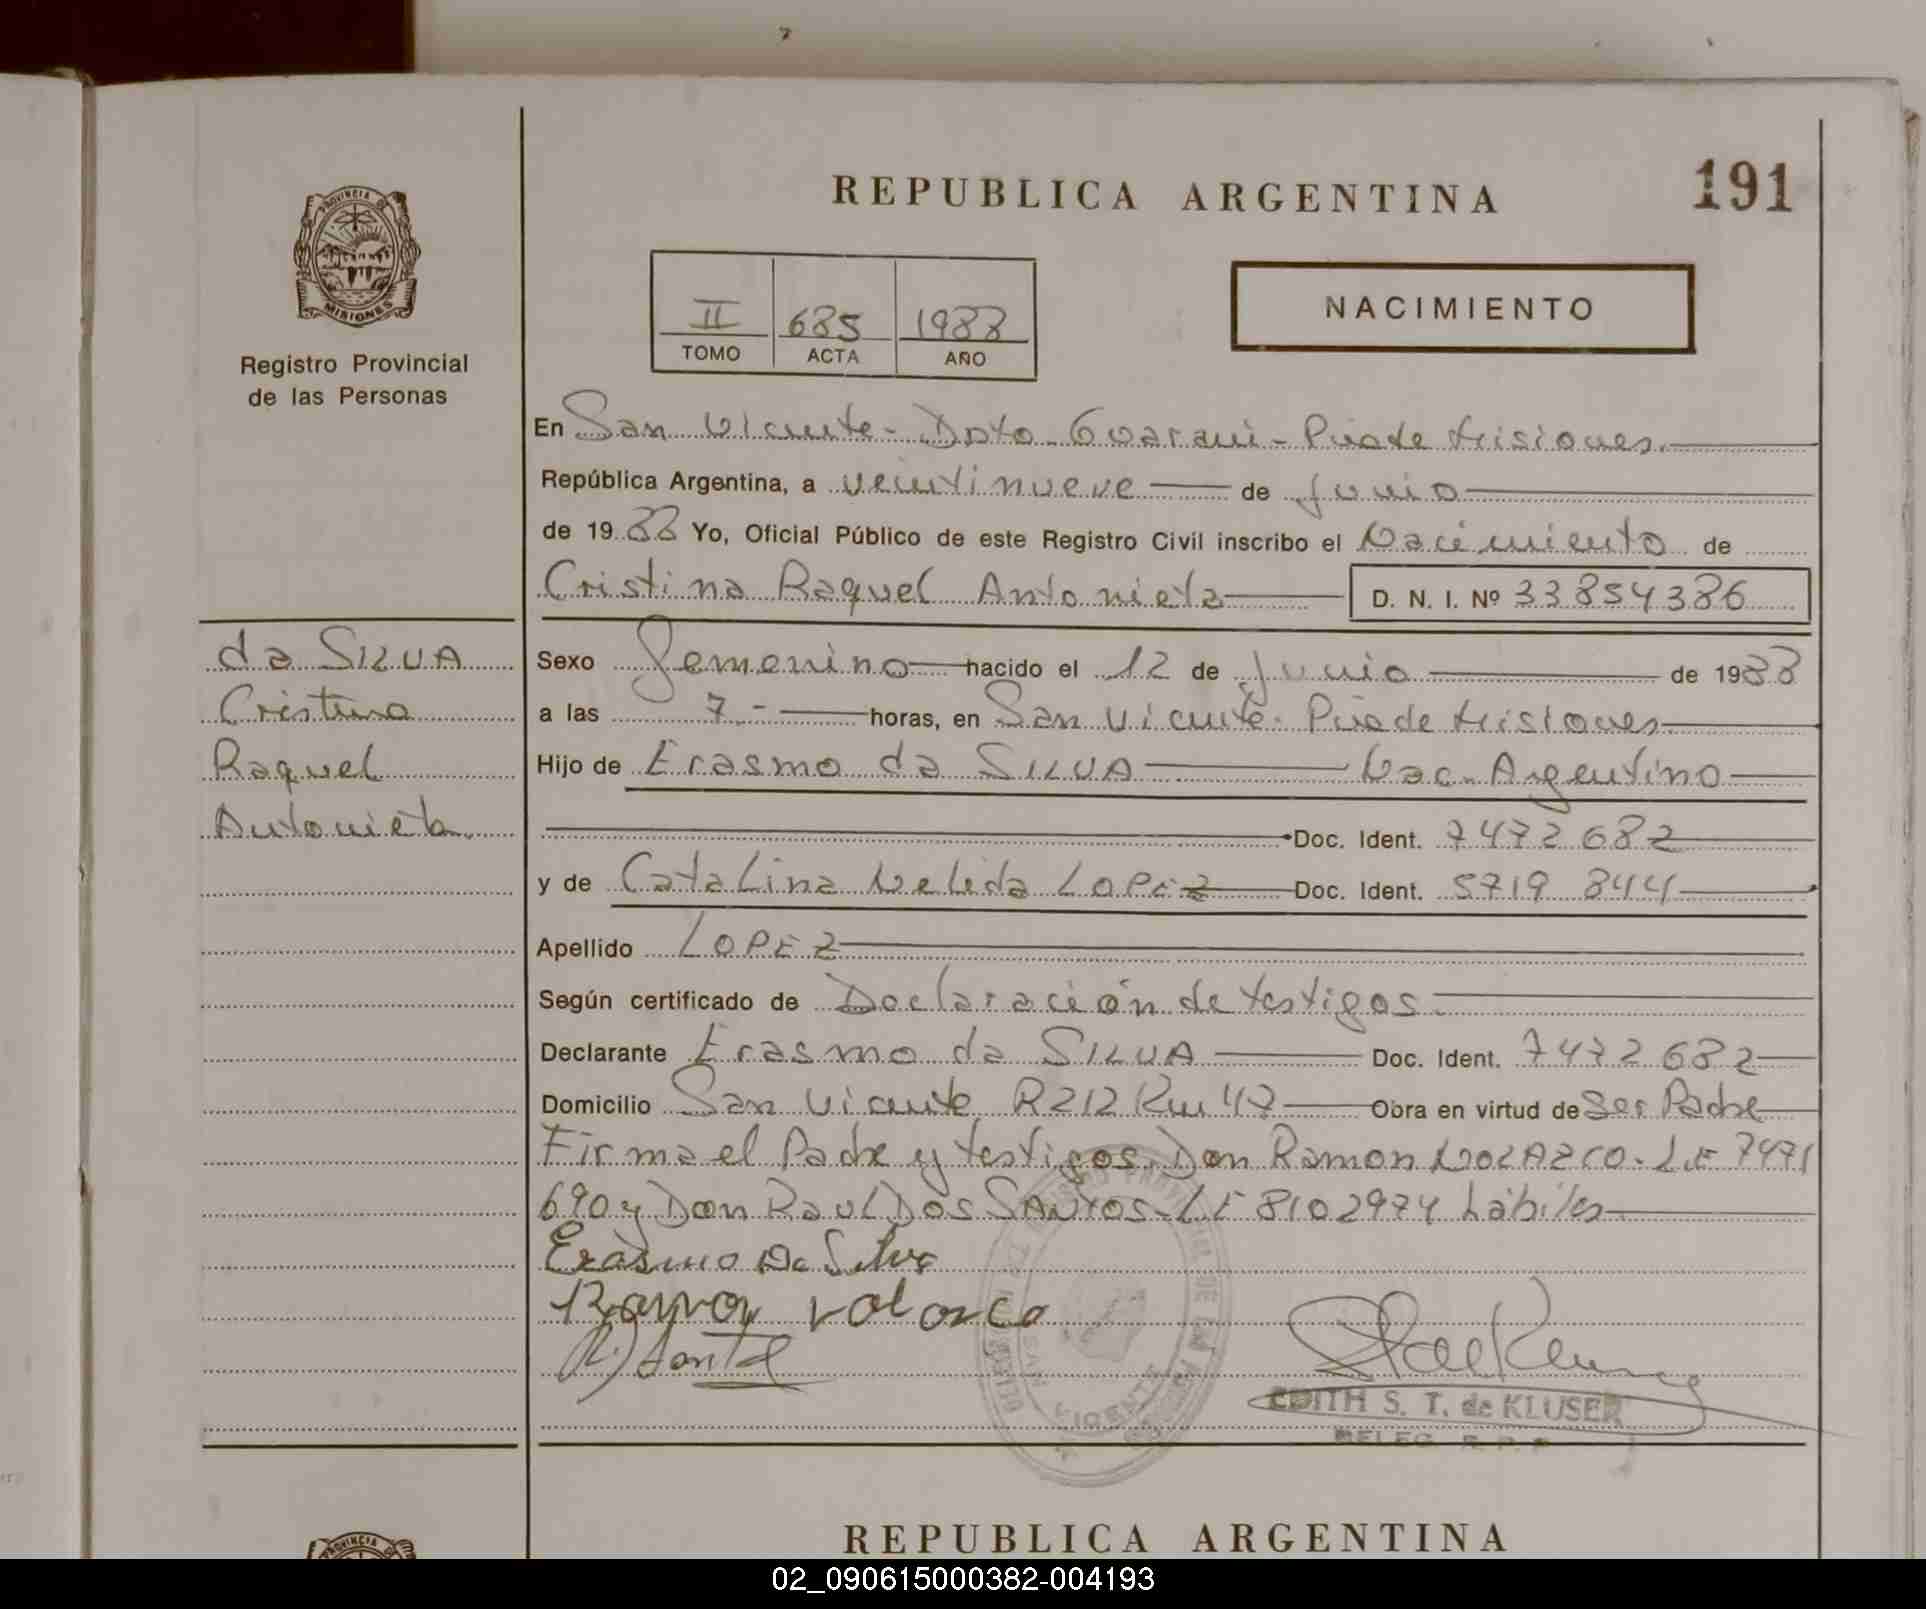 REPUBLICA ARGENTINA
191
PROVINCIA DE
MISIONES
Registro Provincial
de las Personas
II 685 1988
TOMO ACTA AÑO
NACIMIENTO
En San Vicente - Dpto Guaraní - Pcia de Misiones.
República Argentina, a veintinueve de Junio
de 1988 Yo, Oficial Público de este Registro Civil inscribo el Nacimiento de
Cristina Raquel Antonieta D. N. I. Nº 33854386
da SILVA
Cristina
Raquel
Antonieta.
Sexo Femenino nacido el 12 de Junio de 1988
a las 7.- horas, en San Vicente - Pcia de Misiones
Hijo de Erasmo da SILVA Nac. Argentino
Doc. Ident. 7472682
y de Catalina Nelida LOPEZ Doc. Ident. 5719 844
Apellido LOPEZ
Según certificado de Declaración de testigos.
Declarante Erasmo da SILVA Doc. Ident. 7472682
Domicilio San Vicente R212 Km 47 Obra en virtud de Ser Padre
Firma el Padre y testigos. Don Ramon VOLAZCO - L.E 7471
690 y Don Raul DOS SANTOS - LE 8102974 hábiles
Erasmo Da Silva
Ramon Volazco
EDITH S. T. de KLUSER
DELEG. R. P. P
REPUBLICA ARGENTINA
PROVINCIA DE
02_090615000382-004193